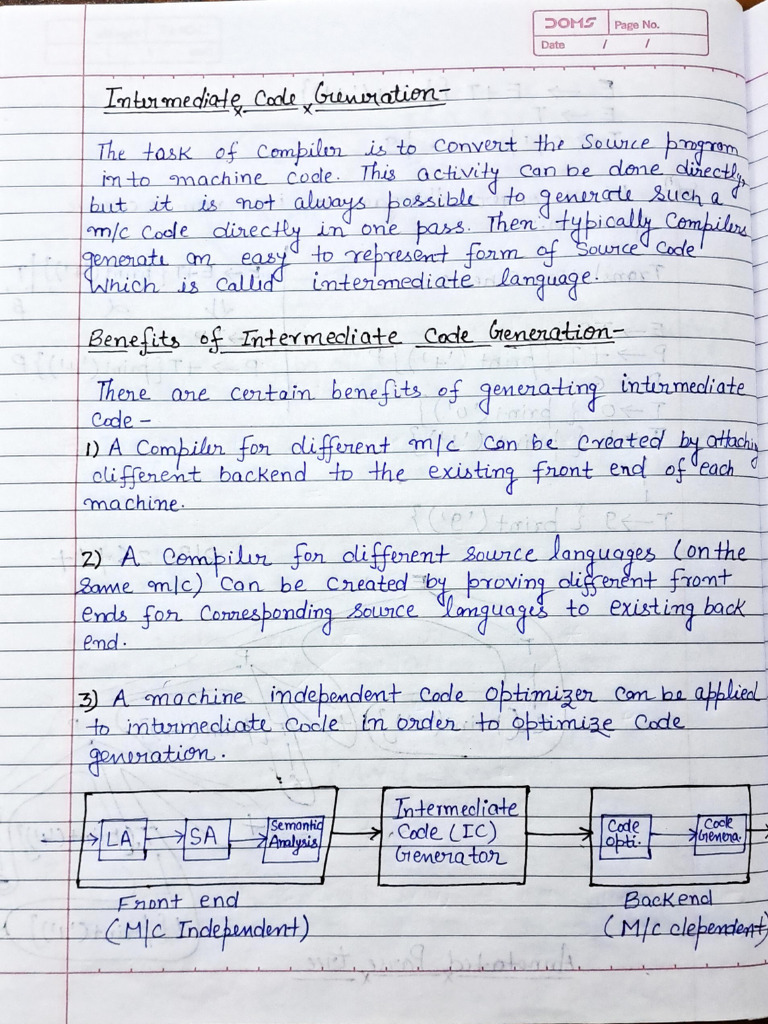 DOMS Page No.
Date / /
Intermediate Code Generation-
The task of compiler is to convert the source program
into machine code. This activity can be done directly,
but it is not always possible to generate such a
m/c code directly in one pass. Then typically compilers
generate an easy to represent form of source code
which is called intermediate language.
Benefits of Intermediate Code Generation-
There are certain benefits of generating intermediate
code -
1) A Compiler for different m/c can be created by attaching
different backend to the existing front end of each
machine.
2) A Compiler for different source languages (on the
same m/c) can be created by proving different front
ends for corresponding source languages to existing back
end.
3) A machine independent code optimizer can be applied
to intermediate code in order to optimize code
generation.
LA SA Semantic Analysis
Intermediate
Code (IC)
Generator
Code Opti.
Code Genera.
Front end
(M/C Independent)
Backend
(M/C dependent)